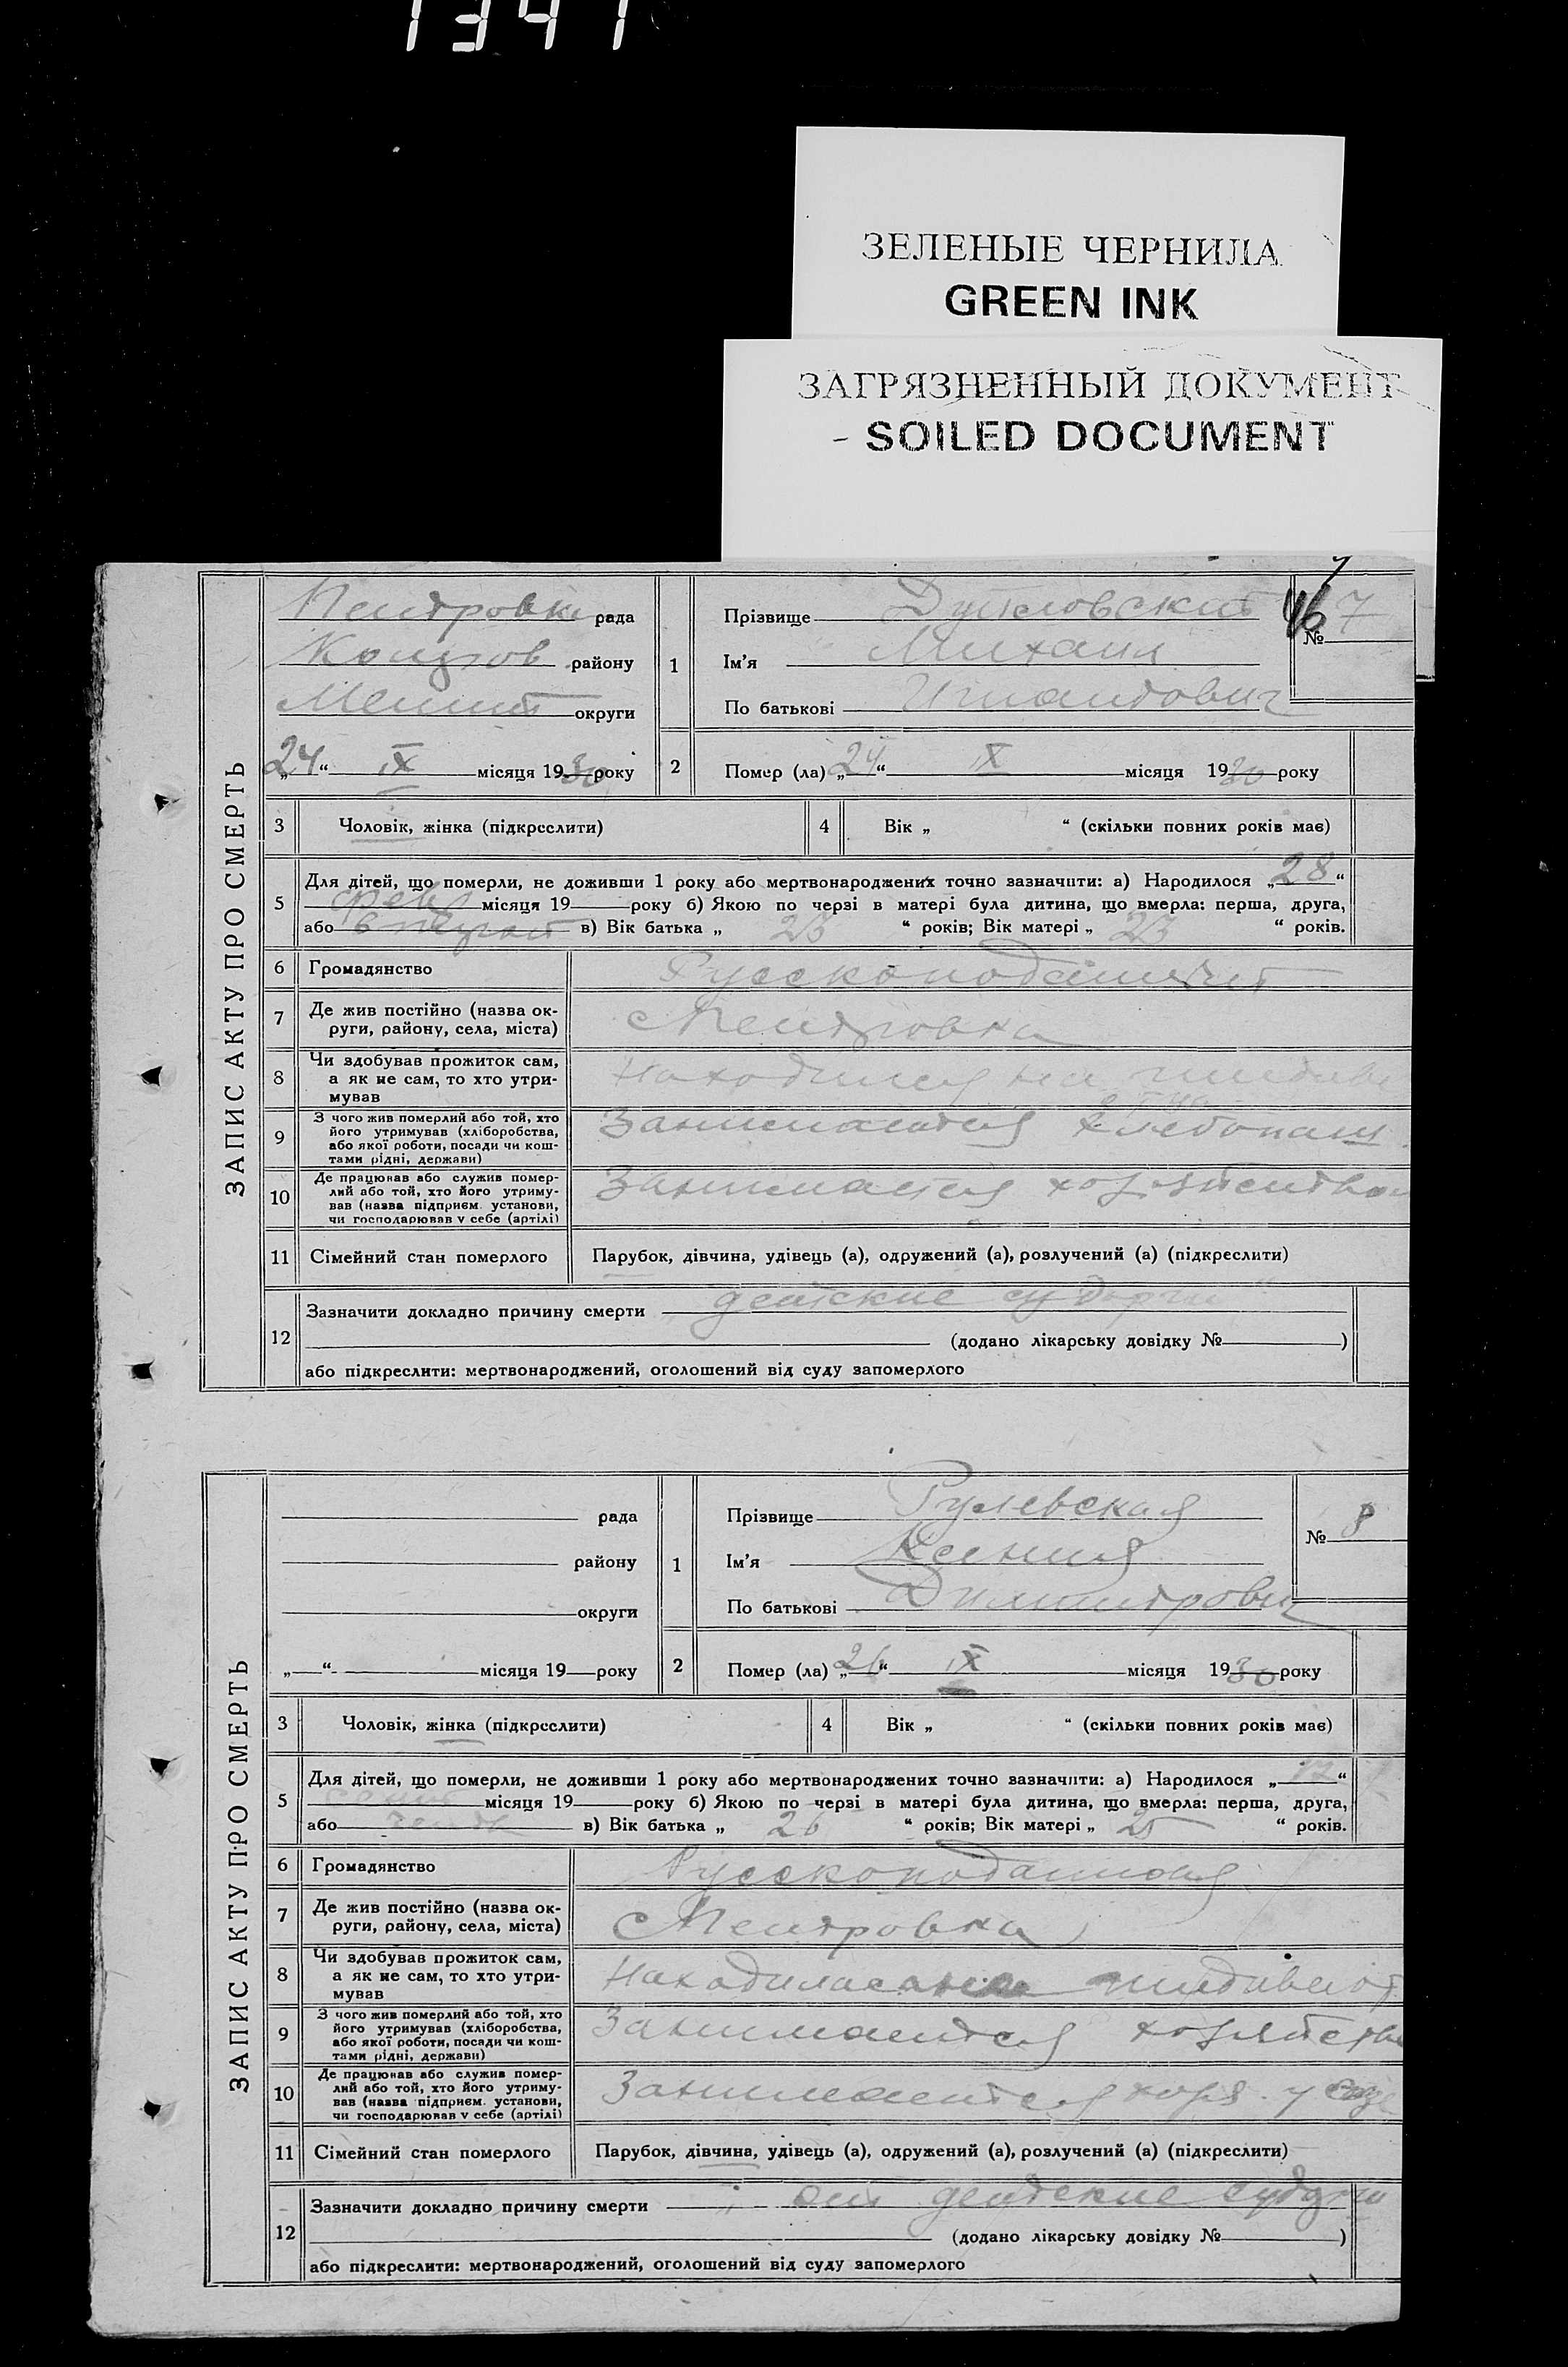 1341
ЗЕЛЕНЫЕ ЧЕРНИЛА
GREEN INK
ЗАГРЯЗНЕННЫЙ ДОКУМЕНТ
- SOILED DOCUMENT
ЗАПИС АКТУ ПРО СМЕРТЬ
рада
району
округи
„24“ IX місяця 1930 року
1
Прізвище
Ім’я Михаил
По батькові
46
№ 7
2
Помер (ла) „24“ IX місяця 1930 року
3
Чоловік, жінка (підкреслити)
4
Вік „ “ (скільки повних років має)
5
Для дітей, що померли, не доживши 1 року або мертвонароджених точно зазначити: а) Народилося „28“
февр місяця 19 року б) Якою по черзі в матері була дитина, що вмерла: перша, друга,
або в) Вік батька „ 23 “ років; Вік матері „ 23 “ років.
6
Громадянство
7
Де жив постійно (назва ок-
руги, району, села, міста)
8
Чи здобував прожиток сам,
а як не сам, то хто утри-
мував
Находился на
9
З чого жив померлий або той, хто
його утримував (хліборобства,
або якої роботи, посади чи кош-
тами рідні, держави)
Занимается
10
Де працював або служив помер-
лий або той, хто його утриму-
вав (назва підприєм. установи,
чи господарював у себе (артілі)
Занимается
11
Сімейний стан померлого
Парубок, дівчина, удівець (а), одружений (а), розлучений (а) (підкреслити)
12
Зазначити докладно причину смерти детские
(додано лікарську довідку № )
або підкреслити: мертвонароджений, оголошений від суду запомерлого
ЗАПИС АКТУ ПРО СМЕРТЬ
рада
району
округи
„ “ місяця 19 року
1
Прізвище Рулевская
Ім’я Ксения
По батькові
№ 8
2
Помер (ла) „26“ IX місяця 1930 року
3
Чоловік, жінка (підкреслити)
4
Вік „ “ (скільки повних років має)
5
Для дітей, що померли, не доживши 1 року або мертвонароджених точно зазначити: а) Народилося „ “
місяця 19 року б) Якою по черзі в матері була дитина, що вмерла: перша, друга,
або в) Вік батька „ 26 “ років; Вік матері „ 25 “ років.
6
Громадянство Русскоподанная
7
Де жив постійно (назва ок-
руги, району, села, міста)
8
Чи здобував прожиток сам,
а як не сам, то хто утри-
мував
9
З чого жив померлий або той, хто
його утримував (хліборобства,
або якої роботи, посади чи кош-
тами рідні, держави)
Занимается
10
Де працював або служив помер-
лий або той, хто його утриму-
вав (назва підприєм. установи,
чи господарював у себе (артілі)
Занимается
11
Сімейний стан померлого
Парубок, дівчина, удівець (а), одружений (а), розлучений (а) (підкреслити)
12
Зазначити докладно причину смерти от детские
(додано лікарську довідку № )
або підкреслити: мертвонароджений, оголошений від суду запомерлого